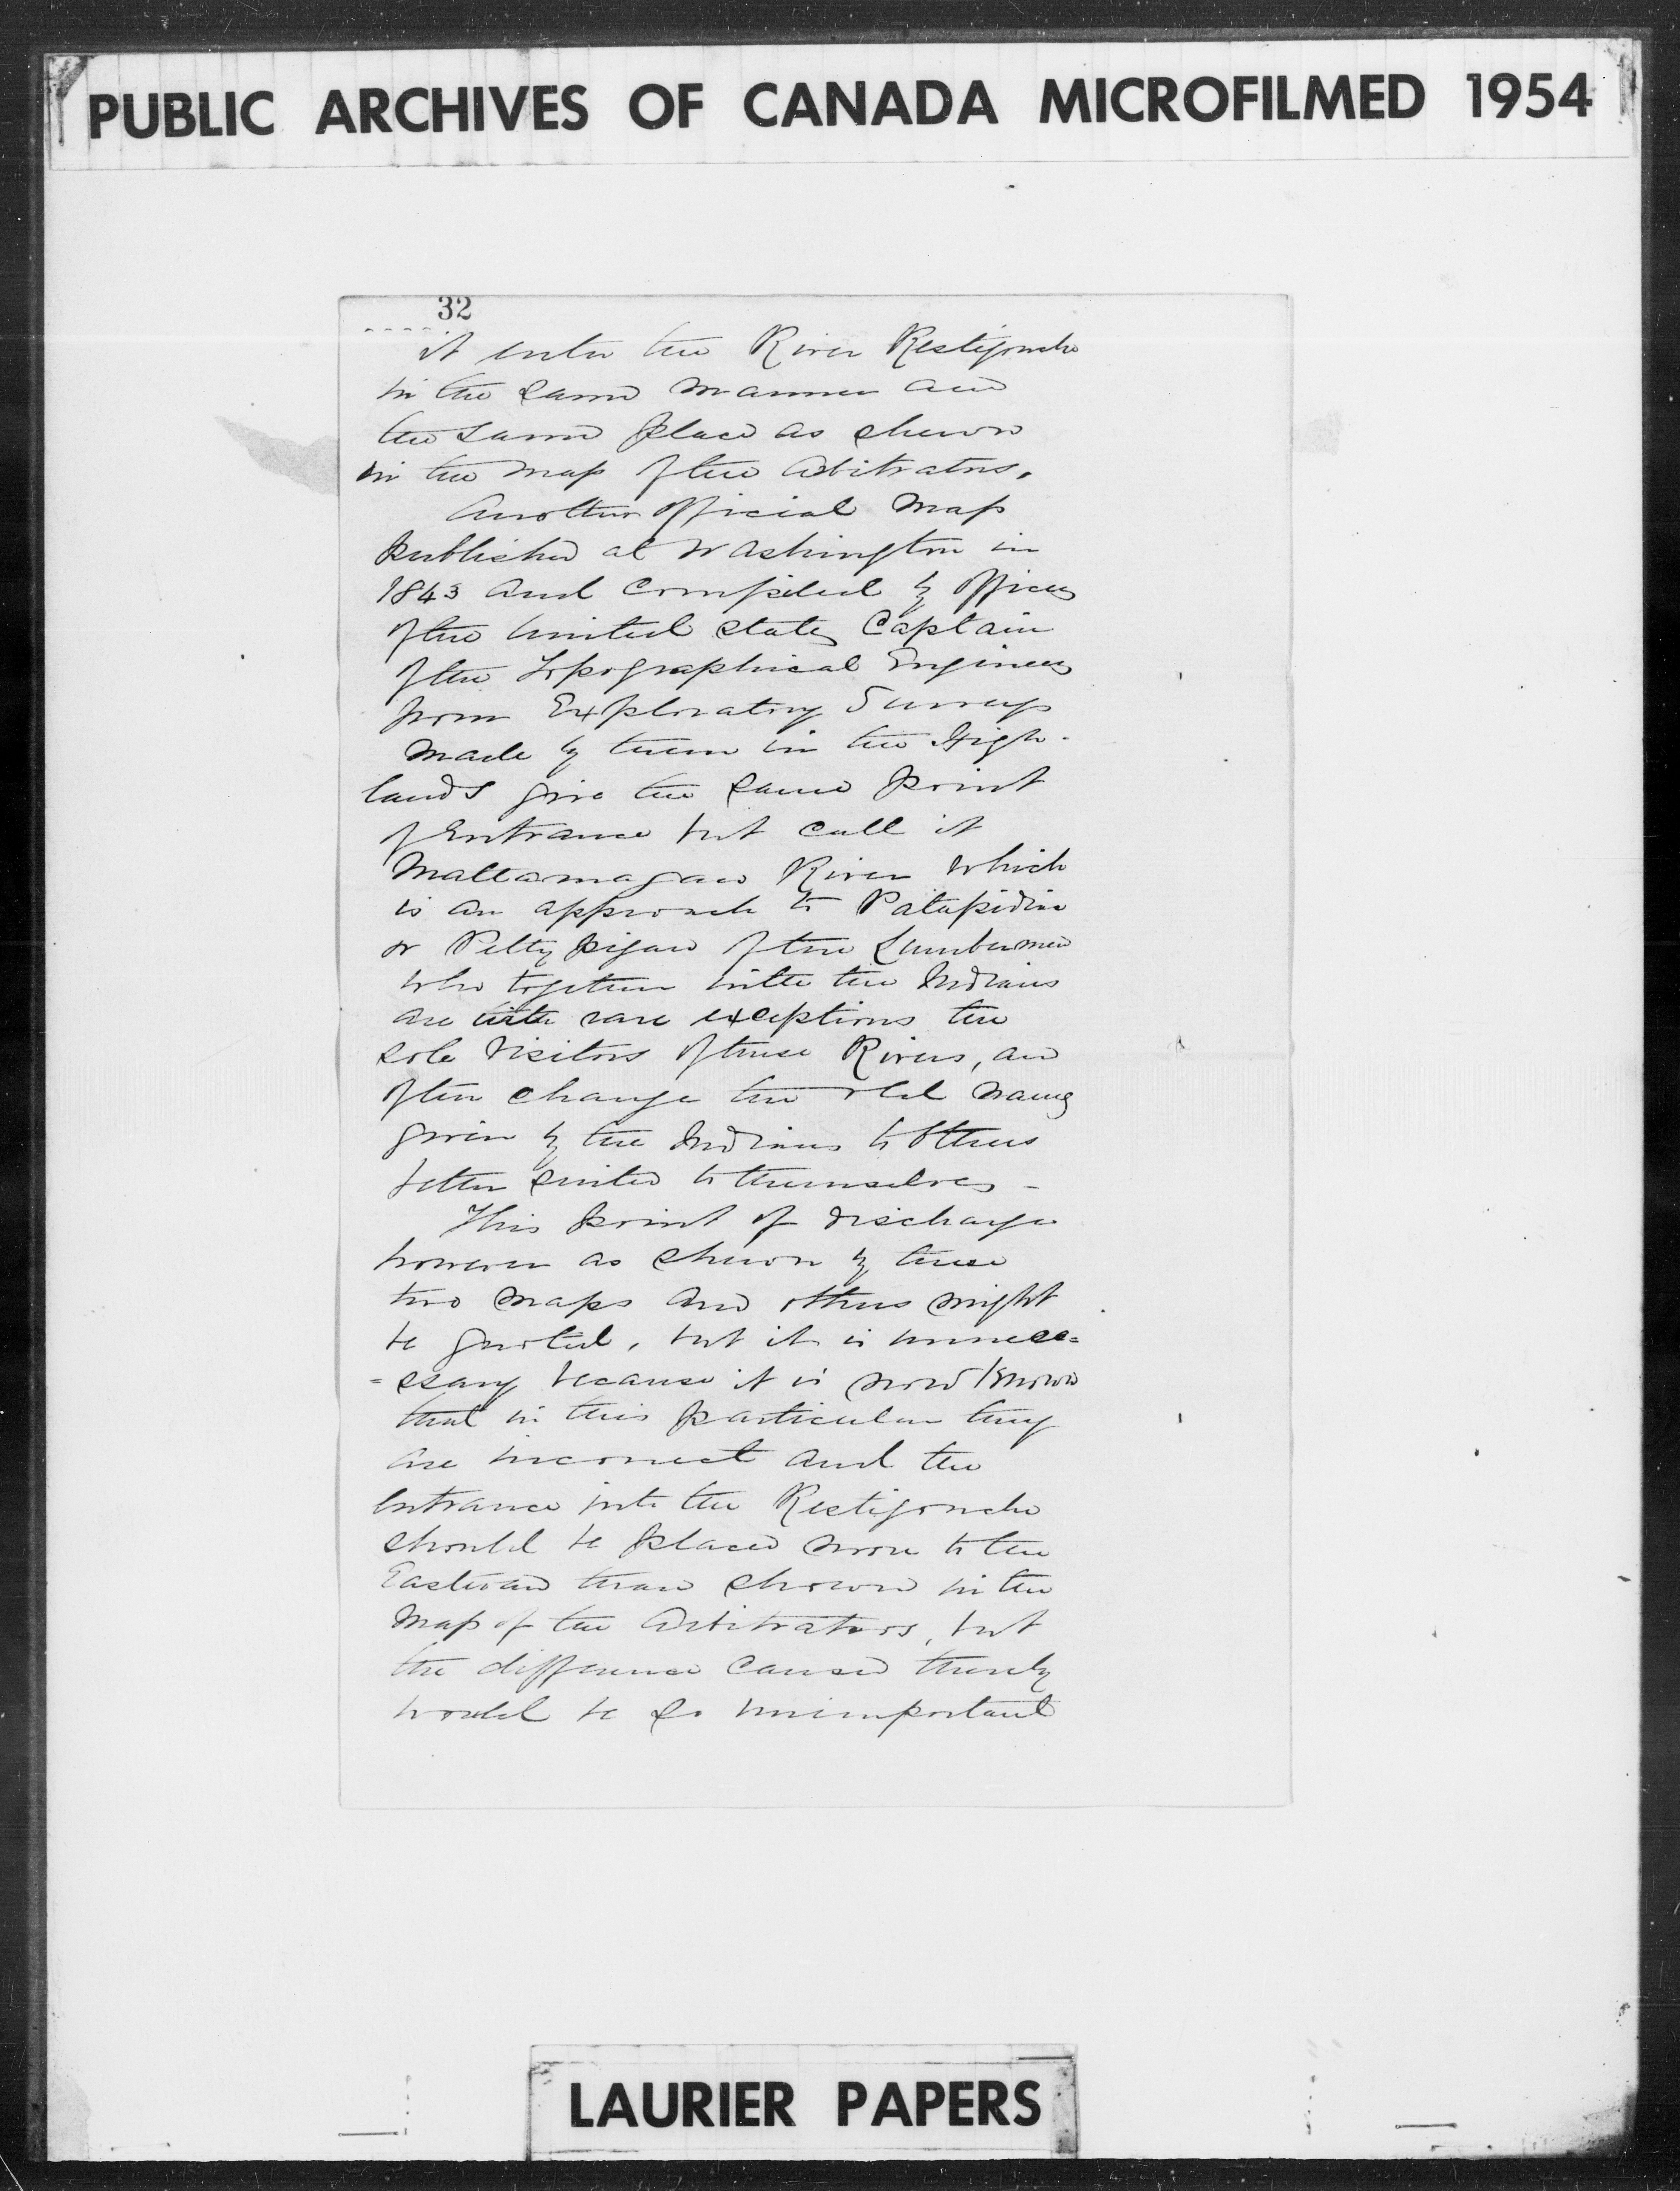 PUBLIC ARCHIVES OF CANADA MICROFILMED 1954
32
it enter the River Restigouche
in the same manner and
the same place as shewn
in the map of the Arbitrators.
Another official Map
published at Washington in
1843 and compiled by Officers
of the United States Captain
of the Topographical Engineers
from Exploratory Surveys
made by them in the High-
lands give the same point
of Entrance but call it
River which
is an approach to Patapidia
or of the Lumbermen
who together with the Indians
are with rare exceptions the
sole Visitors of these Rivers, and
often change the old names
given by the Indians to others
better suited to themselves -
This point of discharge
however as shewn by these
two maps and others might
be quoted, but it is unnece=
=ssary because it is now known
that in this particular they
are incorrect and the
entrance into the Restigouche
should be placed more to the
Eastward than shown in the
Map of the Arbitrators, but
the difference caused thereby
would be so unimportant
LAURIER PAPERS